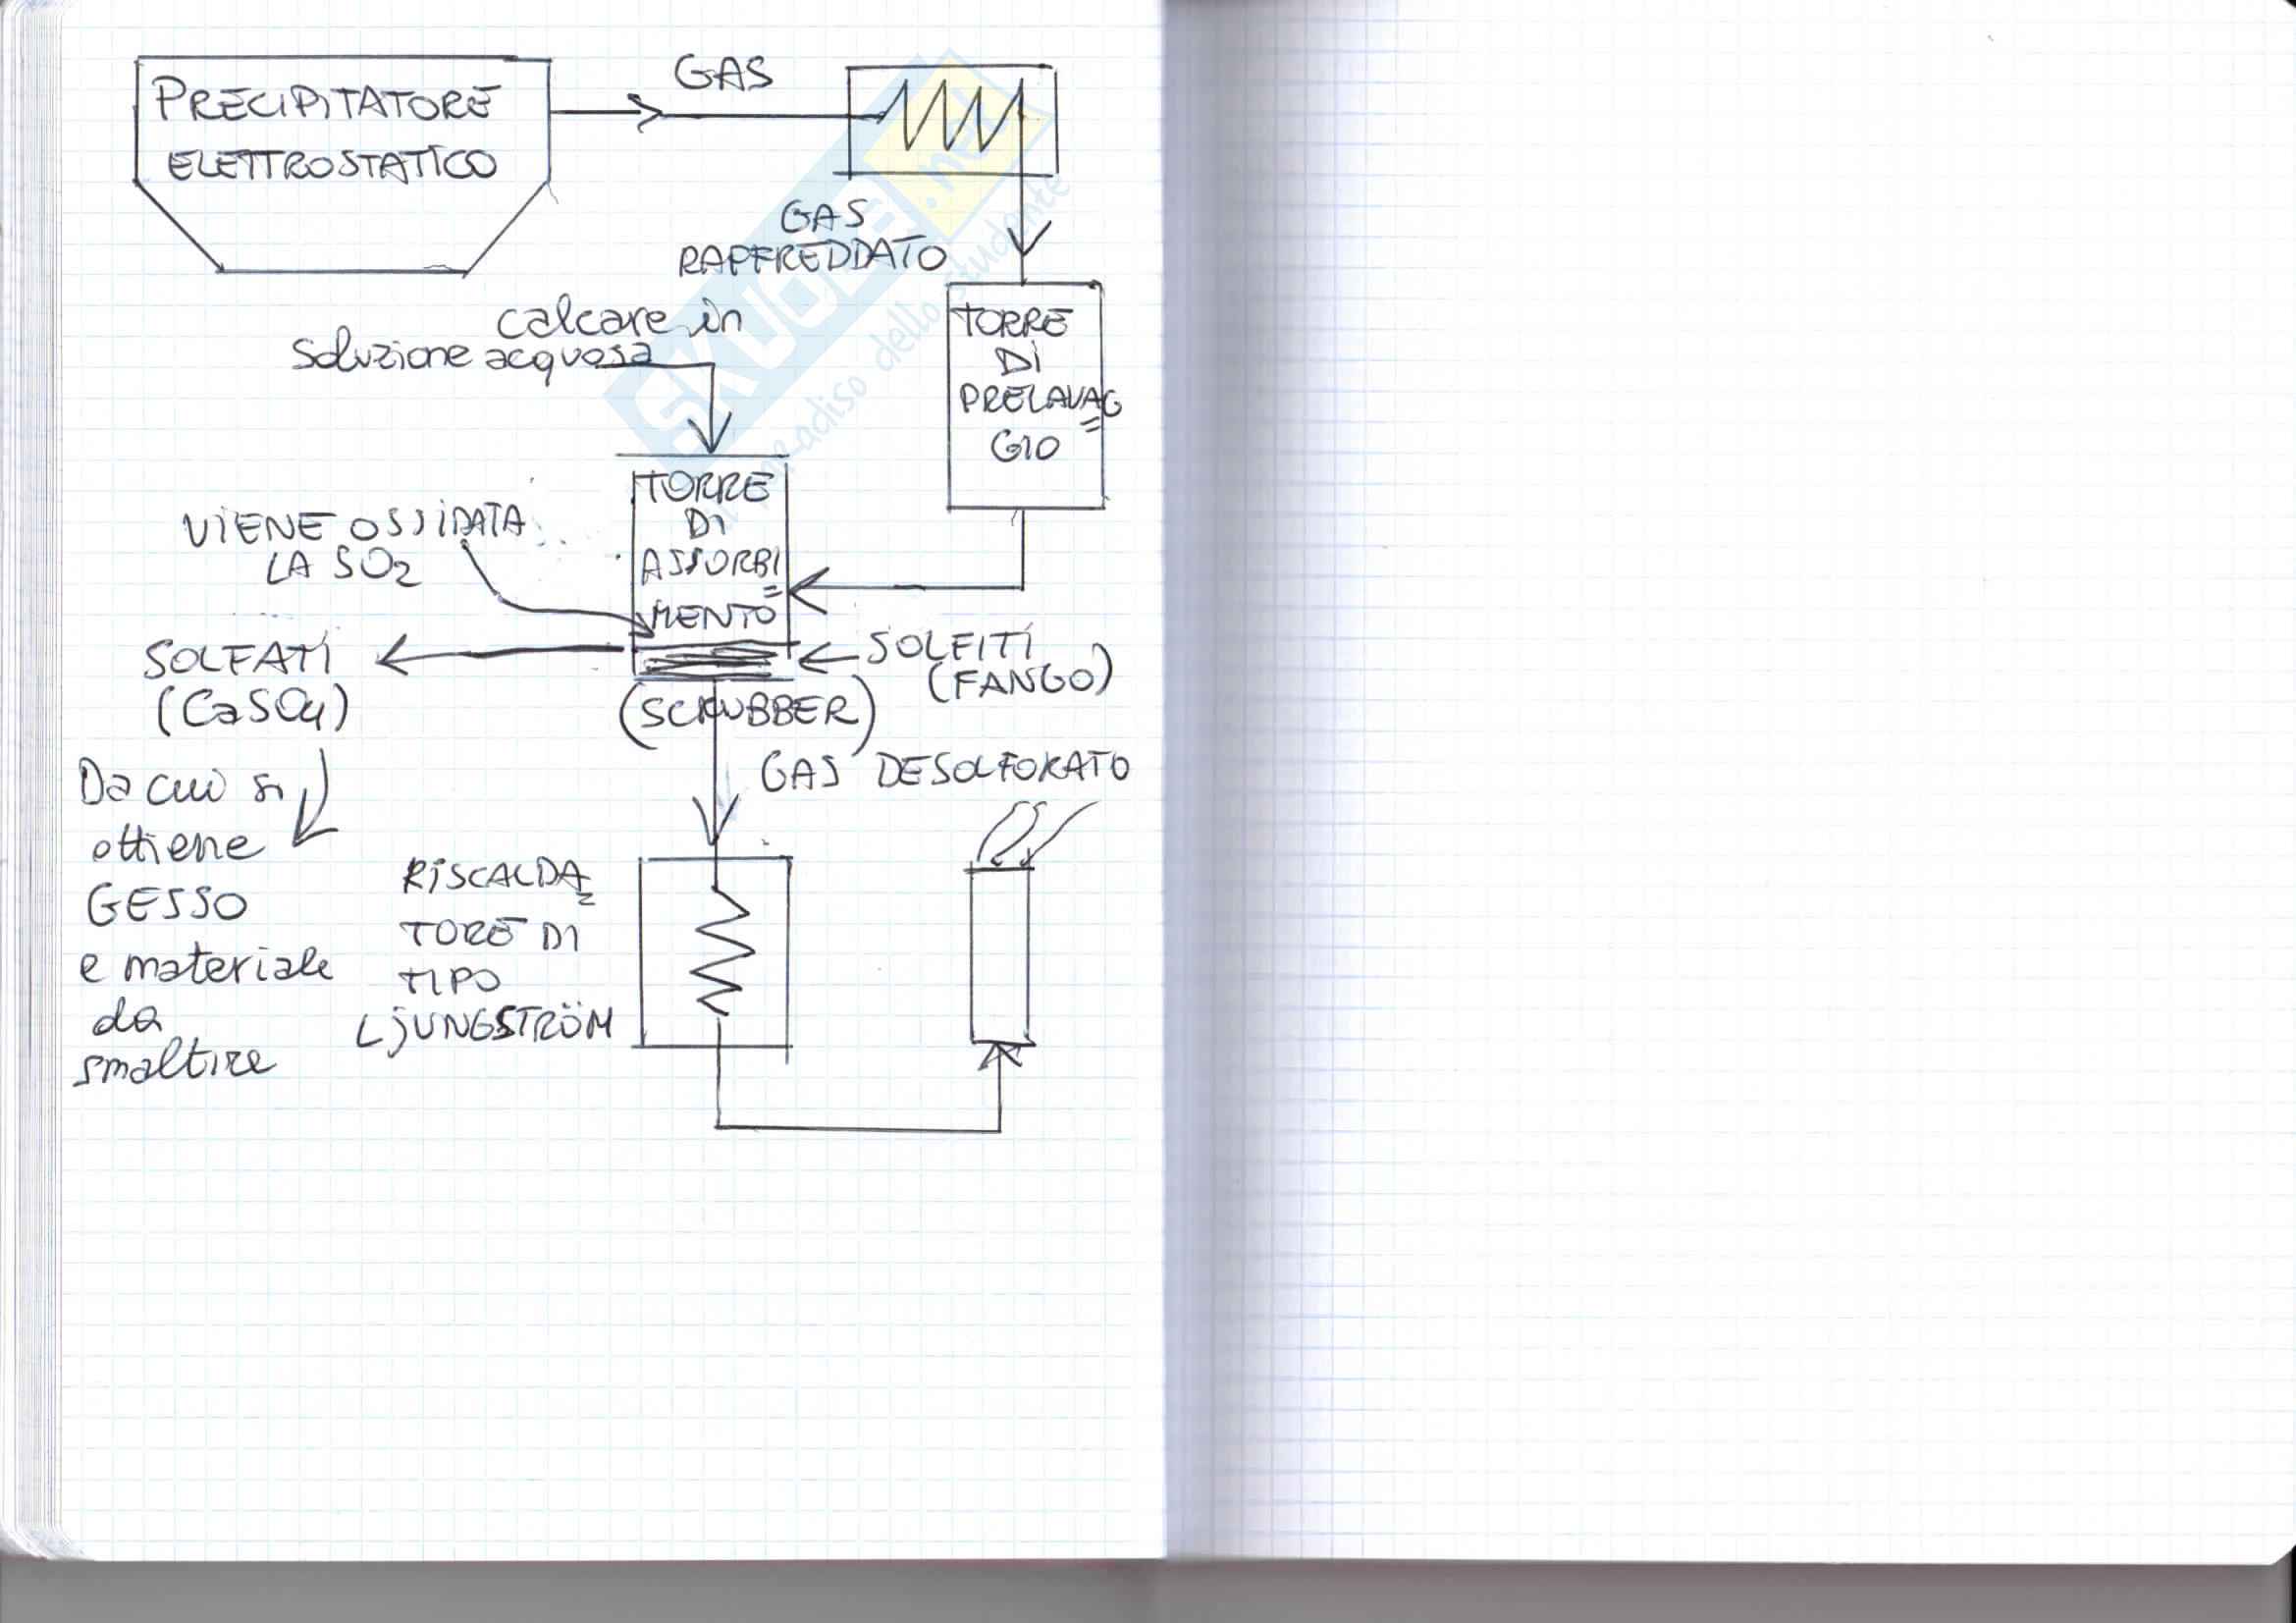 PRECIPITATORE
ELETTROSTATICO
GAS
GAS
RAFFREDDATO
calcare in
soluzione acquosa
TORRE
DI
PRELAVAG
GIO
TORRE
DI
ASSORBI
MENTO
VIENE OSSIDATA
LA SO2
SOLFATI
(CaSO4)
SOLFITI
(FANGO)
(SCRUBBER)
GAS DESOLFORATO
Da cui si
ottiene
GESSO
e materiale
da
smaltire
RISCALDA
TORE DI
TIPO
LjUNGSTRÖM
SKUOLA.net
il paradiso dello studente